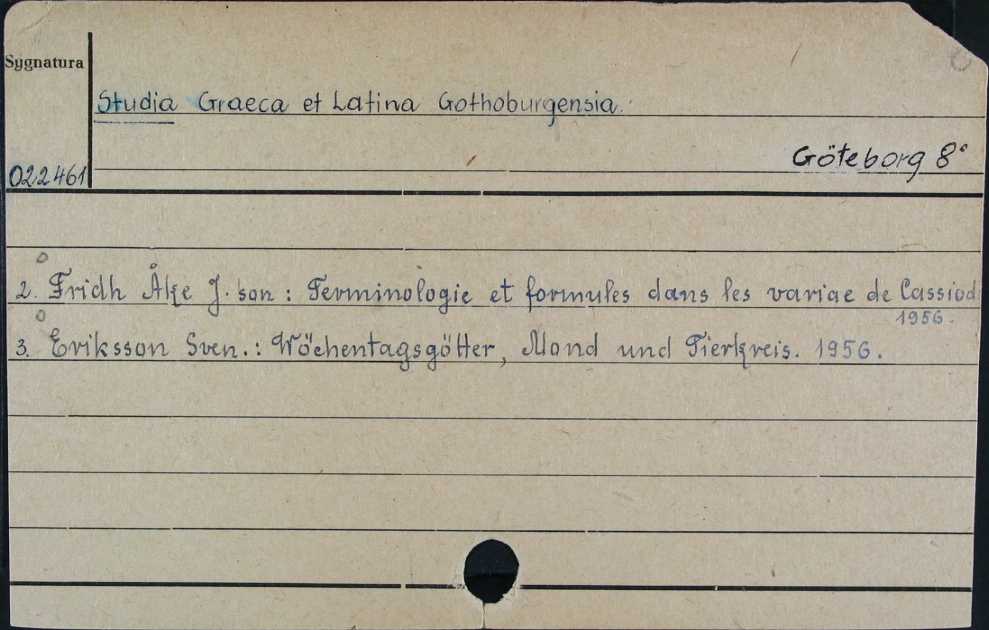 Sygnatura
Studia Graeca et Latina Gothoburgensia.
Göteborg 8°
022461
2. Fridh Åke J. son : Terminologie et formules dans les variae de Cassiod
1956.
3. Eriksson Sven. : Wöchentagsgötter, Mond und Tierkreis. 1956.